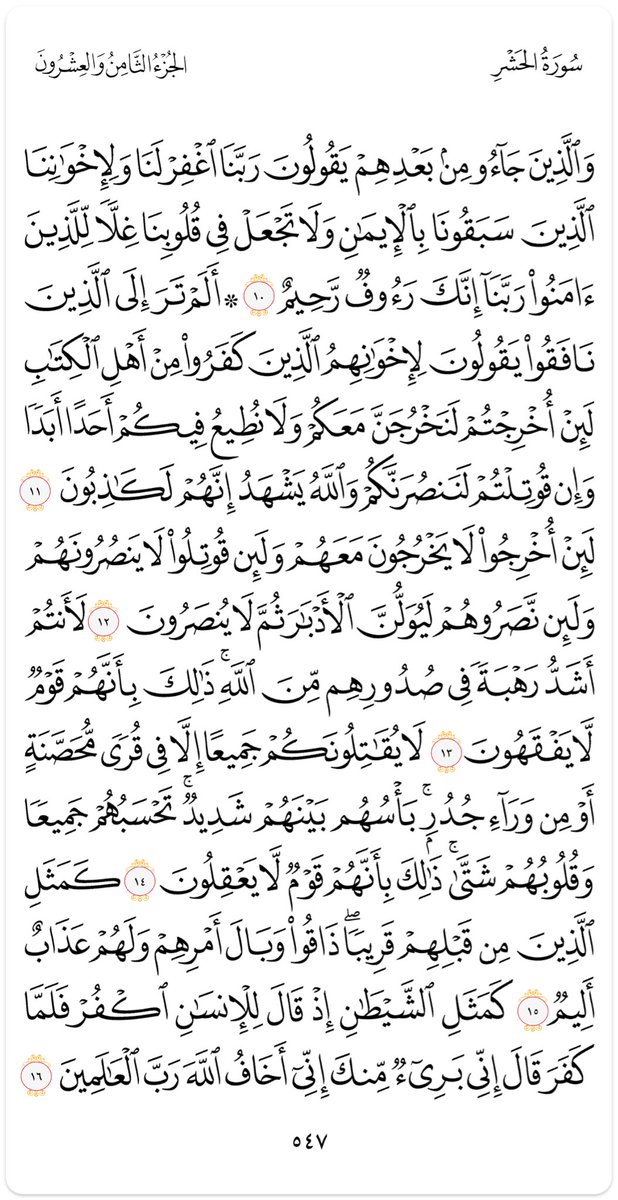 سُورَةُ الحَشْرِ
الجُزْءُ الثَّامِنُ وَالعِشْرُونَ
وَٱلَّذِينَ جَآءُو مِنۢ بَعْدِهِمْ يَقُولُونَ رَبَّنَا ٱغْفِرْ لَنَا وَلِإِخْوَٰنِنَا
ٱلَّذِينَ سَبَقُونَا بِٱلْإِيمَٰنِ وَلَا تَجْعَلْ فِى قُلُوبِنَا غِلًّا لِّلَّذِينَ
ءَامَنُوا۟ رَبَّنَآ إِنَّكَ رَءُوفٌ رَّحِيمٌ ١٠ * أَلَمْ تَرَ إِلَى ٱلَّذِينَ
نَافَقُوا۟ يَقُولُونَ لِإِخْوَٰنِهِمُ ٱلَّذِينَ كَفَرُوا۟ مِنْ أَهْلِ ٱلْكِتَٰبِ
لَئِنْ أُخْرِجْتُمْ لَنَخْرُجَنَّ مَعَكُمْ وَلَا نُطِيعُ فِيكُمْ أَحَدًا أَبَدًا
وَإِن قُوتِلْتُمْ لَنَنصُرَنَّكُمْ وَٱللَّهُ يَشْهَدُ إِنَّهُمْ لَكَٰذِبُونَ ١١
لَئِنْ أُخْرِجُوا۟ لَا يَخْرُجُونَ مَعَهُمْ وَلَئِن قُوتِلُوا۟ لَا يَنصُرُونَهُمْ
وَلَئِن نَّصَرُوهُمْ لَيُوَلُّنَّ ٱلْأَدْبَٰرَ ثُمَّ لَا يُنصَرُونَ ١٢ لَأَنتُمْ
أَشَدُّ رَهْبَةً فِى صُدُورِهِم مِّنَ ٱللَّهِ ۚ ذَٰلِكَ بِأَنَّهُمْ قَوْمٌ
لَّا يَفْقَهُونَ ١٣ لَا يُقَٰتِلُونَكُمْ جَمِيعًا إِلَّا فِى قُرًى مُّحَصَّنَةٍ
أَوْ مِن وَرَآءِ جُدُرٍۭ ۚ بَأْسُهُم بَيْنَهُمْ شَدِيدٌ ۚ تَحْسَبُهُمْ جَمِيعًا
وَقُلُوبُهُمْ شَتَّىٰ ۚ ذَٰلِكَ بِأَنَّهُمْ قَوْمٌ لَّا يَعْقِلُونَ ١٤ كَمَثَلِ
ٱلَّذِينَ مِن قَبْلِهِمْ قَرِيبًا ۖ ذَاقُوا۟ وَبَالَ أَمْرِهِمْ وَلَهُمْ عَذَابٌ
أَلِيمٌ ١٥ كَمَثَلِ ٱلشَّيْطَٰنِ إِذْ قَالَ لِلْإِنسَٰنِ ٱكْفُرْ فَلَمَّا
كَفَرَ قَالَ إِنِّى بَرِىٓءٌ مِّنكَ إِنِّىٓ أَخَافُ ٱللَّهَ رَبَّ ٱلْعَٰلَمِينَ ١٦
٥٤٧